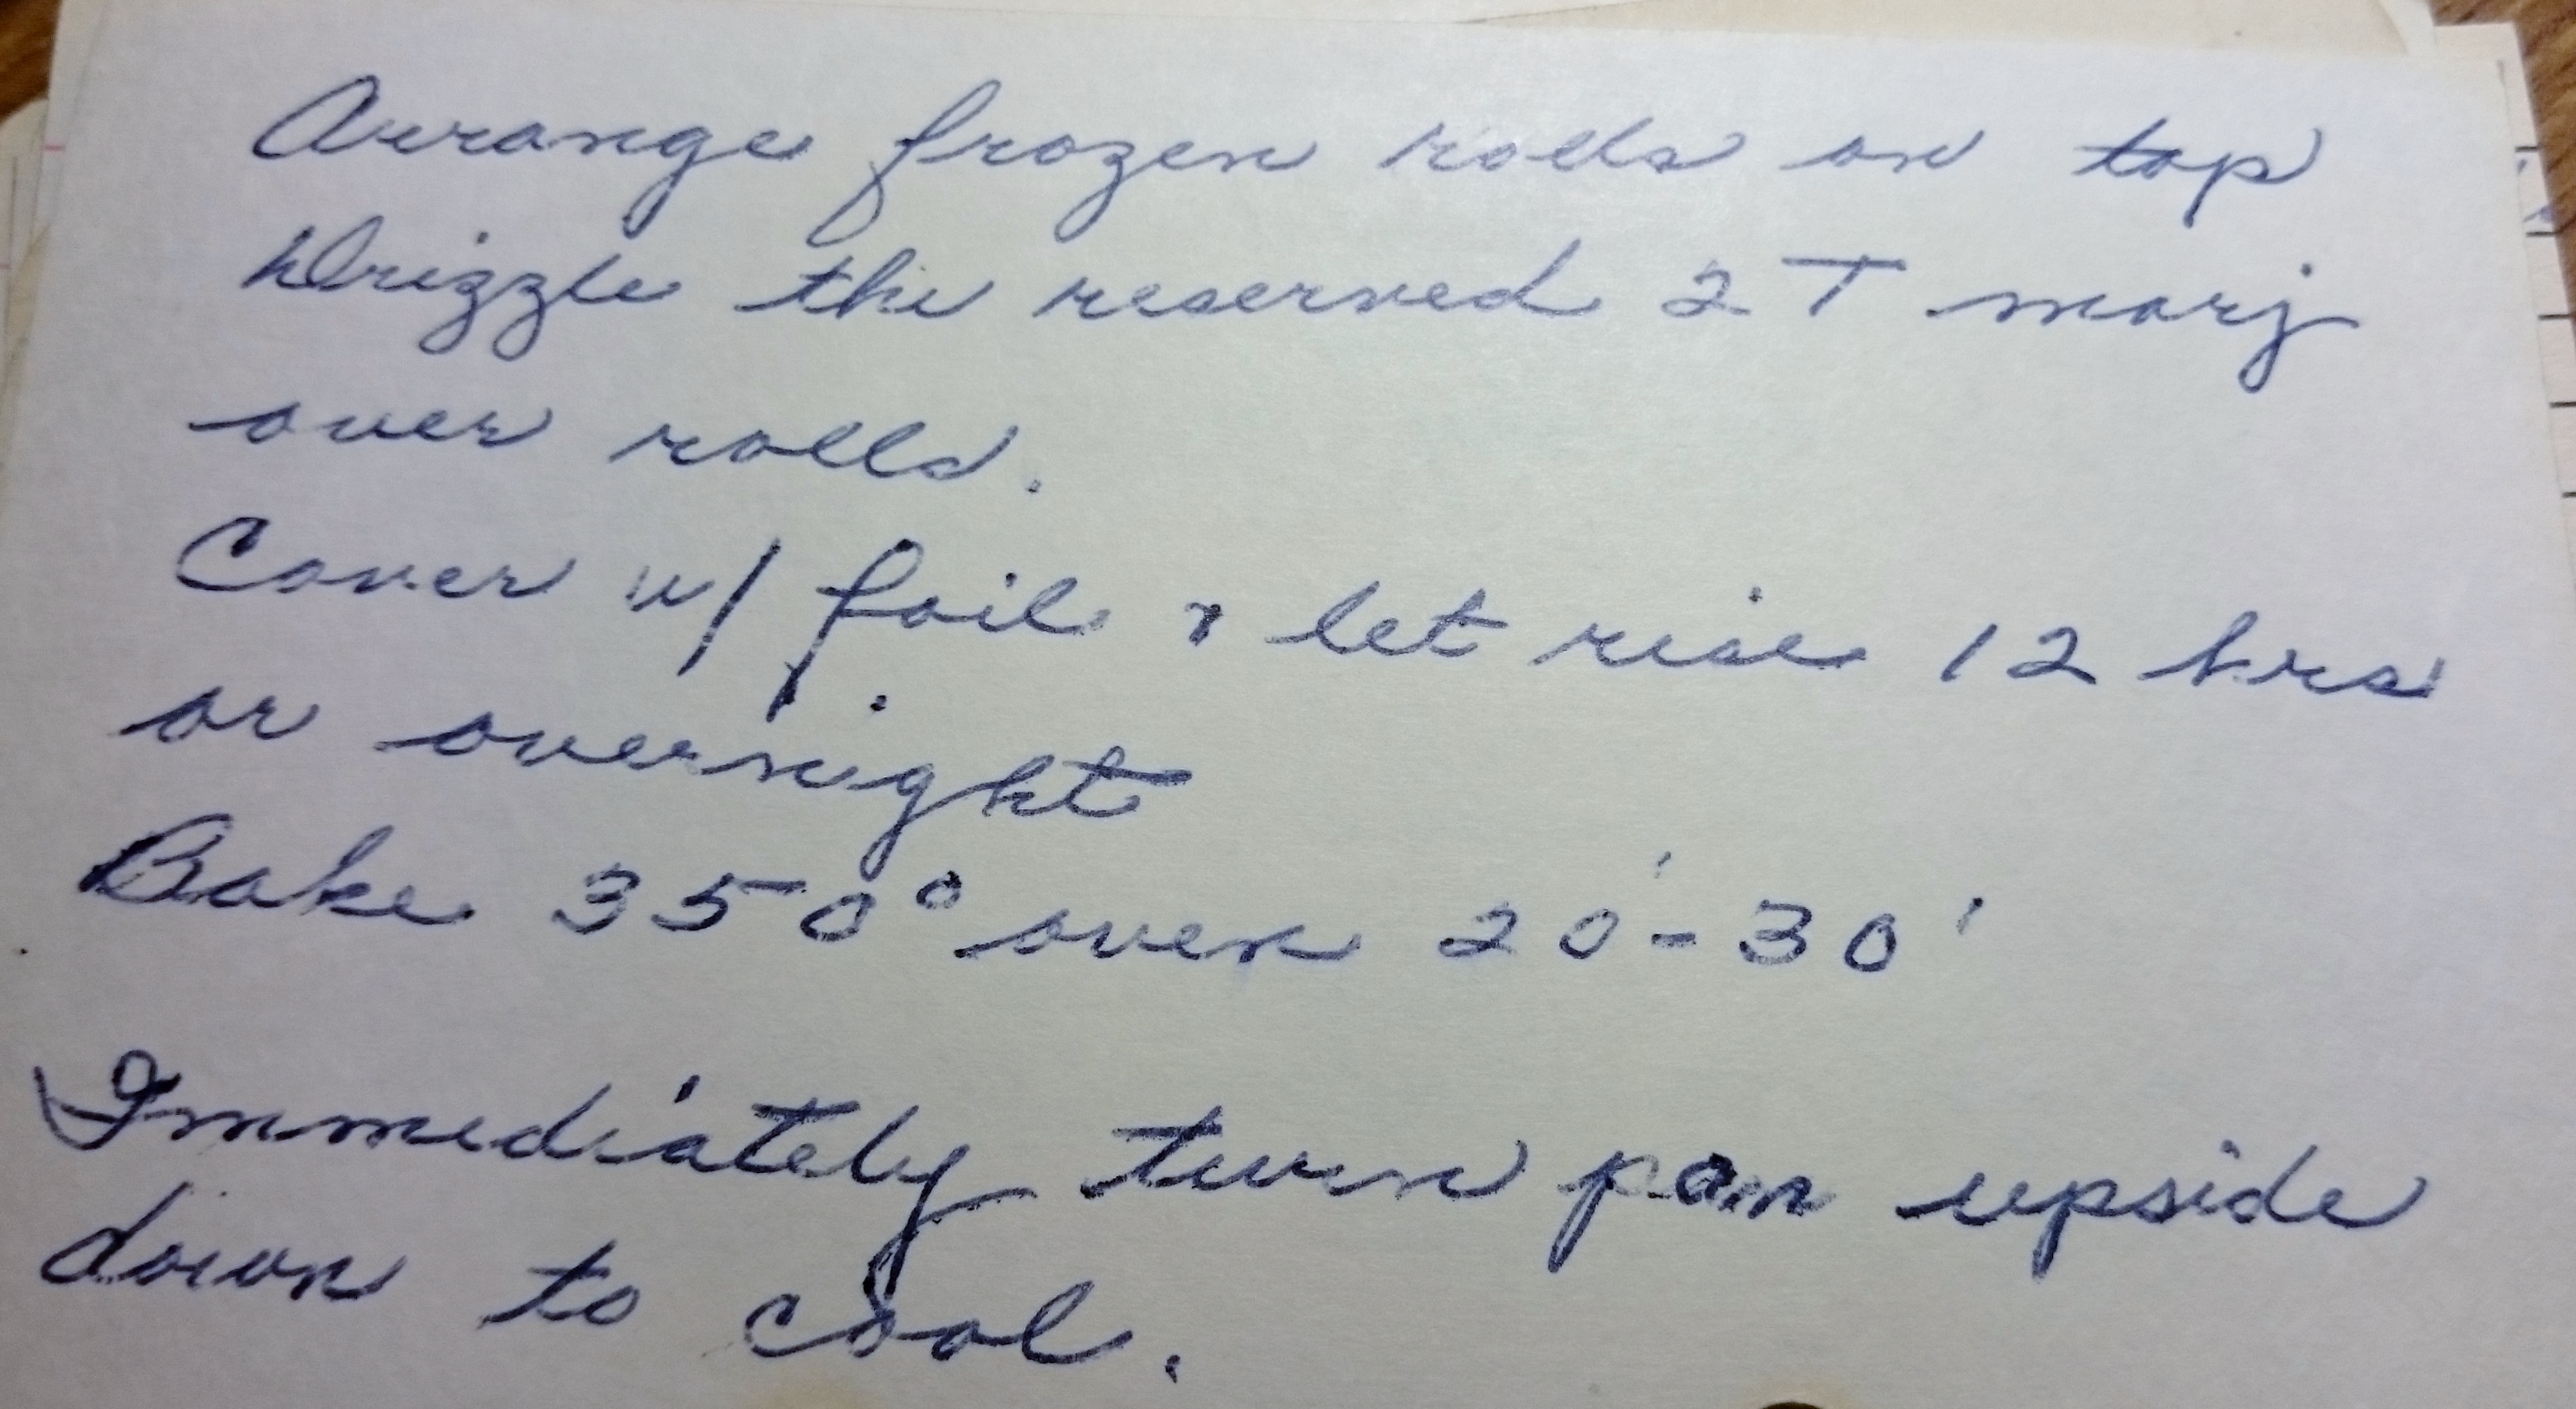 Arrange frozen rolls on top
Drizzle the reserved 2 T marj
over rolls.
Cover w/ foil & let rise 12 hrs
or overnight
Bake 350° oven 20'-30'
Immediately turn pan upside
down to cool.